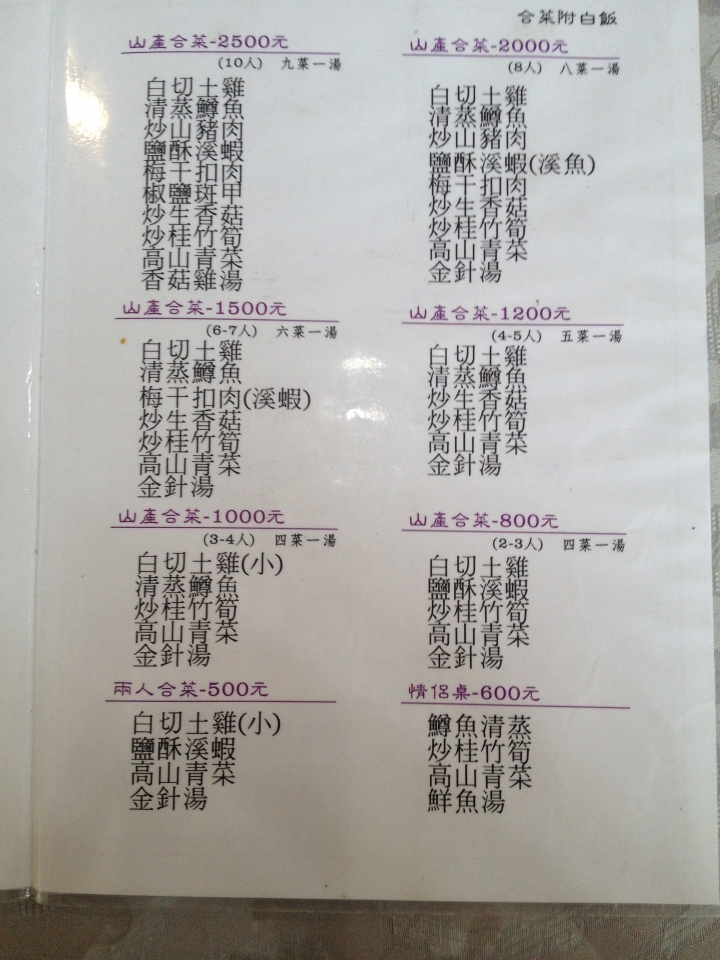 合菜附白飯
山產合菜-2500元
(10人) 九菜一湯
白切土雞
清蒸鱒魚
炒山豬肉
鹽酥溪蝦
梅干扣肉
椒鹽斑甲
炒生香菇
炒桂竹筍
高山青菜
香菇雞湯
山產合菜-2000元
(8人) 八菜一湯
白切土雞
清蒸鱒魚
炒山豬肉
鹽酥溪蝦(溪魚)
梅干扣肉
炒生香菇
炒桂竹筍
高山青菜
金針湯
山產合菜-1500元
(6-7人) 六菜一湯
白切土雞
清蒸鱒魚
梅干扣肉(溪蝦)
炒生香菇
炒桂竹筍
高山青菜
金針湯
山產合菜-1200元
(4-5人) 五菜一湯
白切土雞
清蒸鱒魚
炒生香菇
炒桂竹筍
高山青菜
金針湯
山產合菜-1000元
(3-4人) 四菜一湯
白切土雞(小)
清蒸鱒魚
炒桂竹筍
高山青菜
金針湯
山產合菜-800元
(2-3人) 四菜一湯
白切土雞
鹽酥溪蝦
炒桂竹筍
高山青菜
金針湯
兩人合菜-500元
白切土雞(小)
鹽酥溪蝦
高山青菜
金針湯
情侶桌-600元
鱒魚清蒸
炒桂竹筍
高山青菜
鮮魚湯